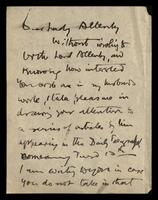 Dear Lady Allenby
Without wishing to
bother Lord Allenby, and
knowing how interested
you both are in my husband's
work, I take pleasure in
drawing your attention to
a series of articles by him
appearing in the Daily Telegraph
commencing
I am writing beforehand in case
you do not take in that